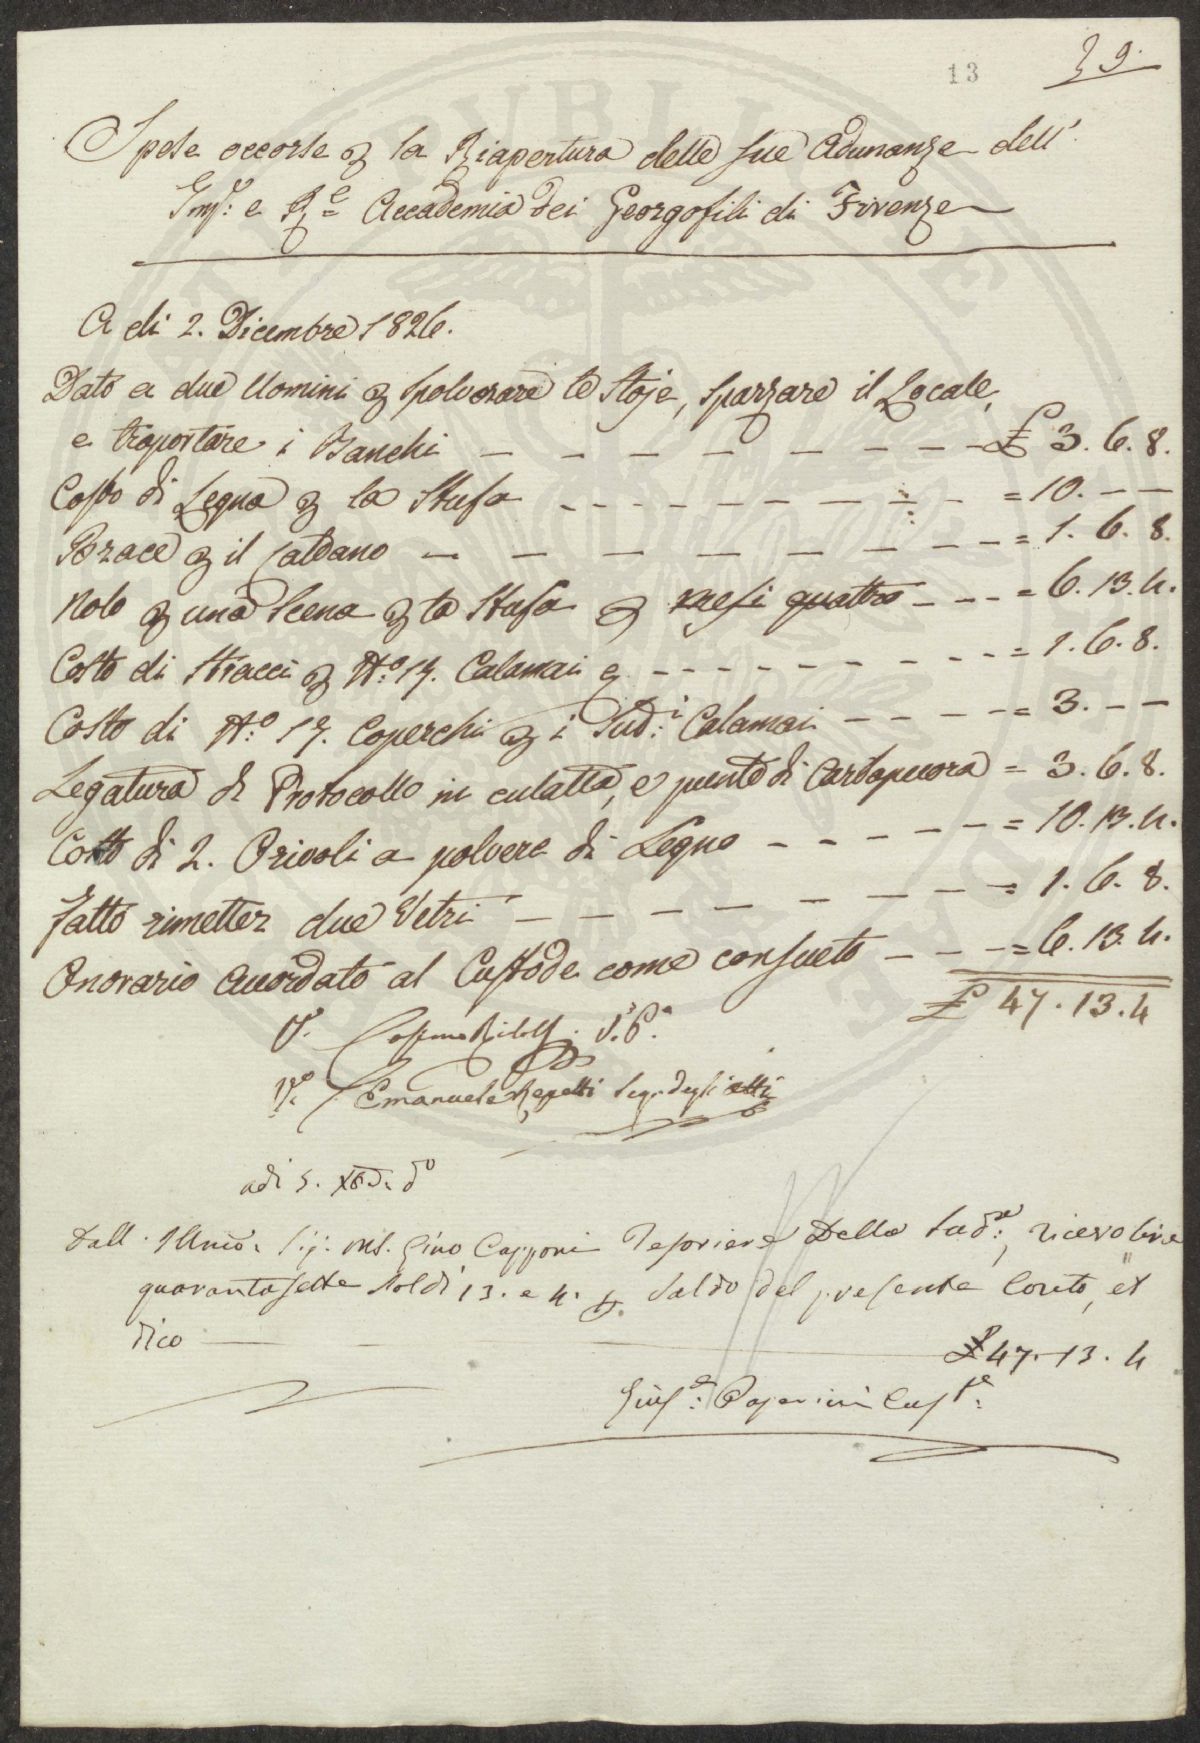 13
39.
Spese occorse p la Riapertura delle sue Adunanze dell'
Imp: e R.e Accademia dei Georgofili di Firenze
A di 2. Dicembre 1826.
Dato a due Uomini p spolverare le Stoje, spazzare il Locale,
e trasportare i Banchi — — — — — — — £ 3. 6. 8.
Costo di Legna p la Stufa - - - - - - - - = 10. — —
Brace p il Caldano — — — — — — — — = 1. 6. 8.
Nolo p una Scena p la Stufa p mesi quattro - - - = 6. 13. 4.
Costo di Stracci p N.o 17. Calamai e - - - - - - - = 1. 6. 8.
Costo di N.o 17. Coperchi p i Sud.i Calamai - - - - = 3. — —
Legatura di Protocollo in culatta, e punte di Cartapecora = 3. 6. 8.
Costo di 2. Orivoli a polvere di Legno - - - - - = 10. 13. 4.
Fatto rimetter due Vetri — — — — — — — = 1. 6. 8.
Onorario accordato al Custode come consueto - - - = 6. 13. 4.
£ 47. 13. 4
V. Cosimo Ridolfi V. P.
V.o Emanuele Repetti Seg. degli atti
adi 5. Xbre d.o
Dall. Illmo. Sig. M. Gino Capponi Tesoriere Della Sud.a, ricevo lire
quarantasette soldi 13. e 4. p Saldo del presente Conto, et
dico — £ 47. 13. 4
Gius.e Paperini Cust.e